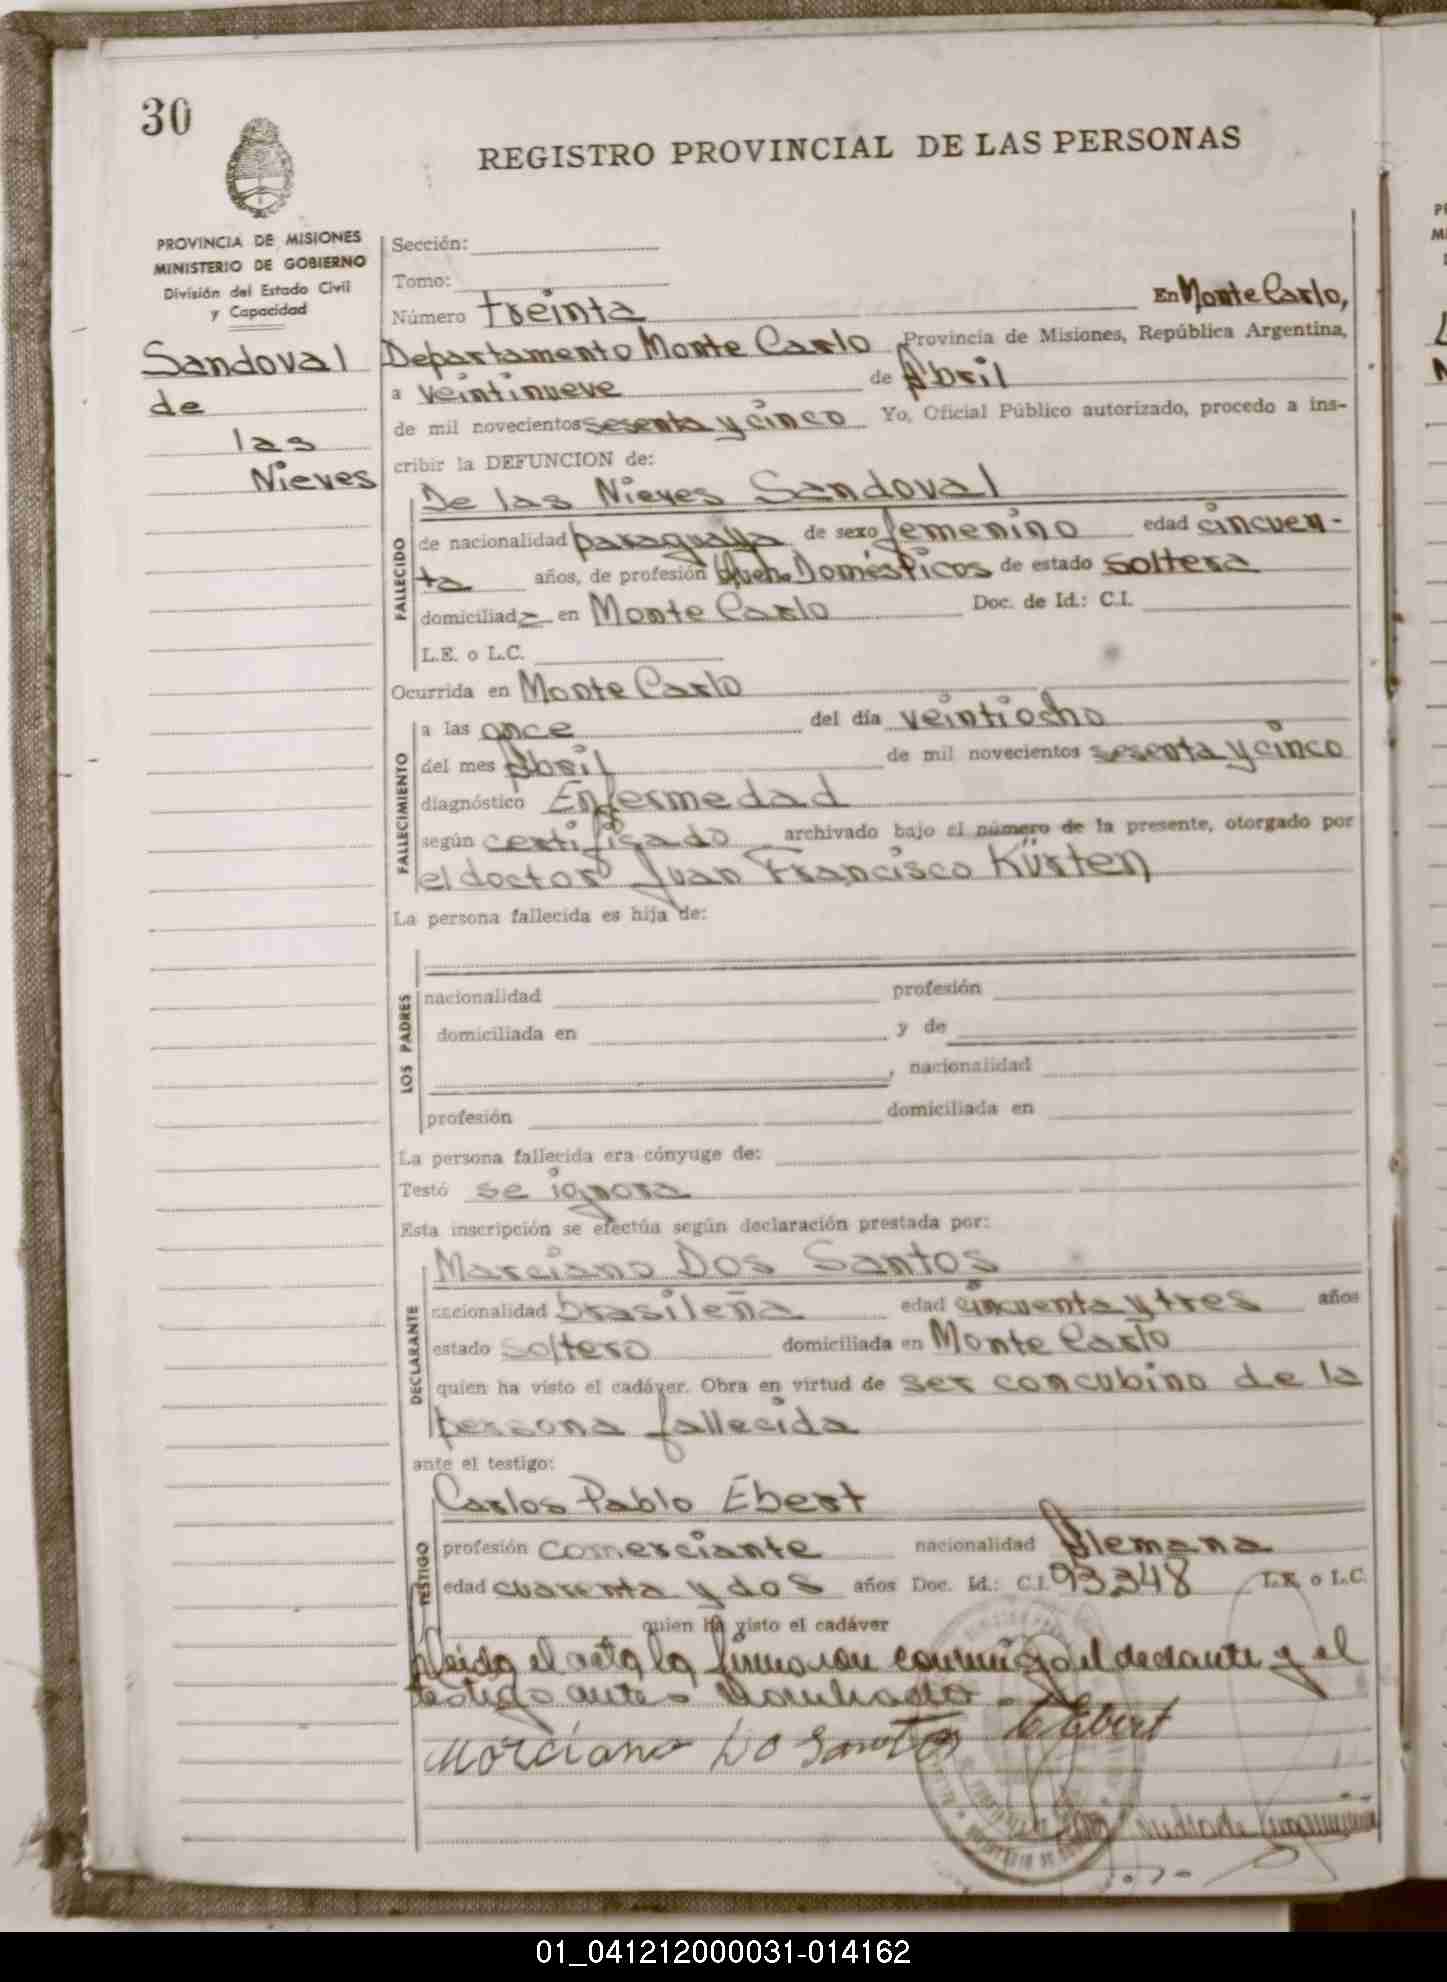 30
REGISTRO PROVINCIAL DE LAS PERSONAS
PROVINCIA DE MISIONES
MINISTERIO DE GOBIERNO
División del Estado Civil
y Capacidad
Sandoval
de
las
Nieves
Sección:
Tomo:
Número treinta En Monte Carlo,
Departamento Monte Carlo Provincia de Misiones, República Argentina,
a veintinueve de Abril
de mil novecientos sesenta y cinco Yo, Oficial Público autorizado, procedo a ins-
cribir la DEFUNCION de:
FALLECIDO
De las Nieves Sandoval
de nacionalidad paraguaya de sexo femenino edad cincuen-
ta años, de profesión Queh. Domésticos de estado soltera
domiciliada en Monte Carlo Doc. de Id.: C.I.
L.E. o L.C.
Ocurrida en Monte Carlo
FALLECIMIENTO
a las once del día veintiocho
del mes Abril de mil novecientos sesenta y cinco
diagnóstico Enfermedad
según certificado archivado bajo el número de la presente, otorgado por
el doctor Juan Francisco Kürten
La persona fallecida es hija de:
LOS PADRES
nacionalidad profesión
domiciliada en y de
, nacionalidad
profesión domiciliada en
La persona fallecida era cónyuge de:
Testó se ignora
Esta inscripción se efectúa según declaración prestada por:
DECLARANTE
Marciano Dos Santos
nacionalidad brasileña edad cincuenta y tres años
estado soltero domiciliada en Monte Carlo
quien ha visto el cadáver. Obra en virtud de ser concubino de la
persona fallecida
ante el testigo:
TESTIGO
Carlos Pablo Ebert
profesión comerciante nacionalidad Alemana
edad cuarenta y dos años Doc. Id.: C.I. 93.348 L.E. o L.C.
quien ha visto el cadáver
Leida el acta la firmaron conmigo el declante y el
testigo ante - nombrado -
Morciano Do Santos C Ebert
01_041212000031-014162